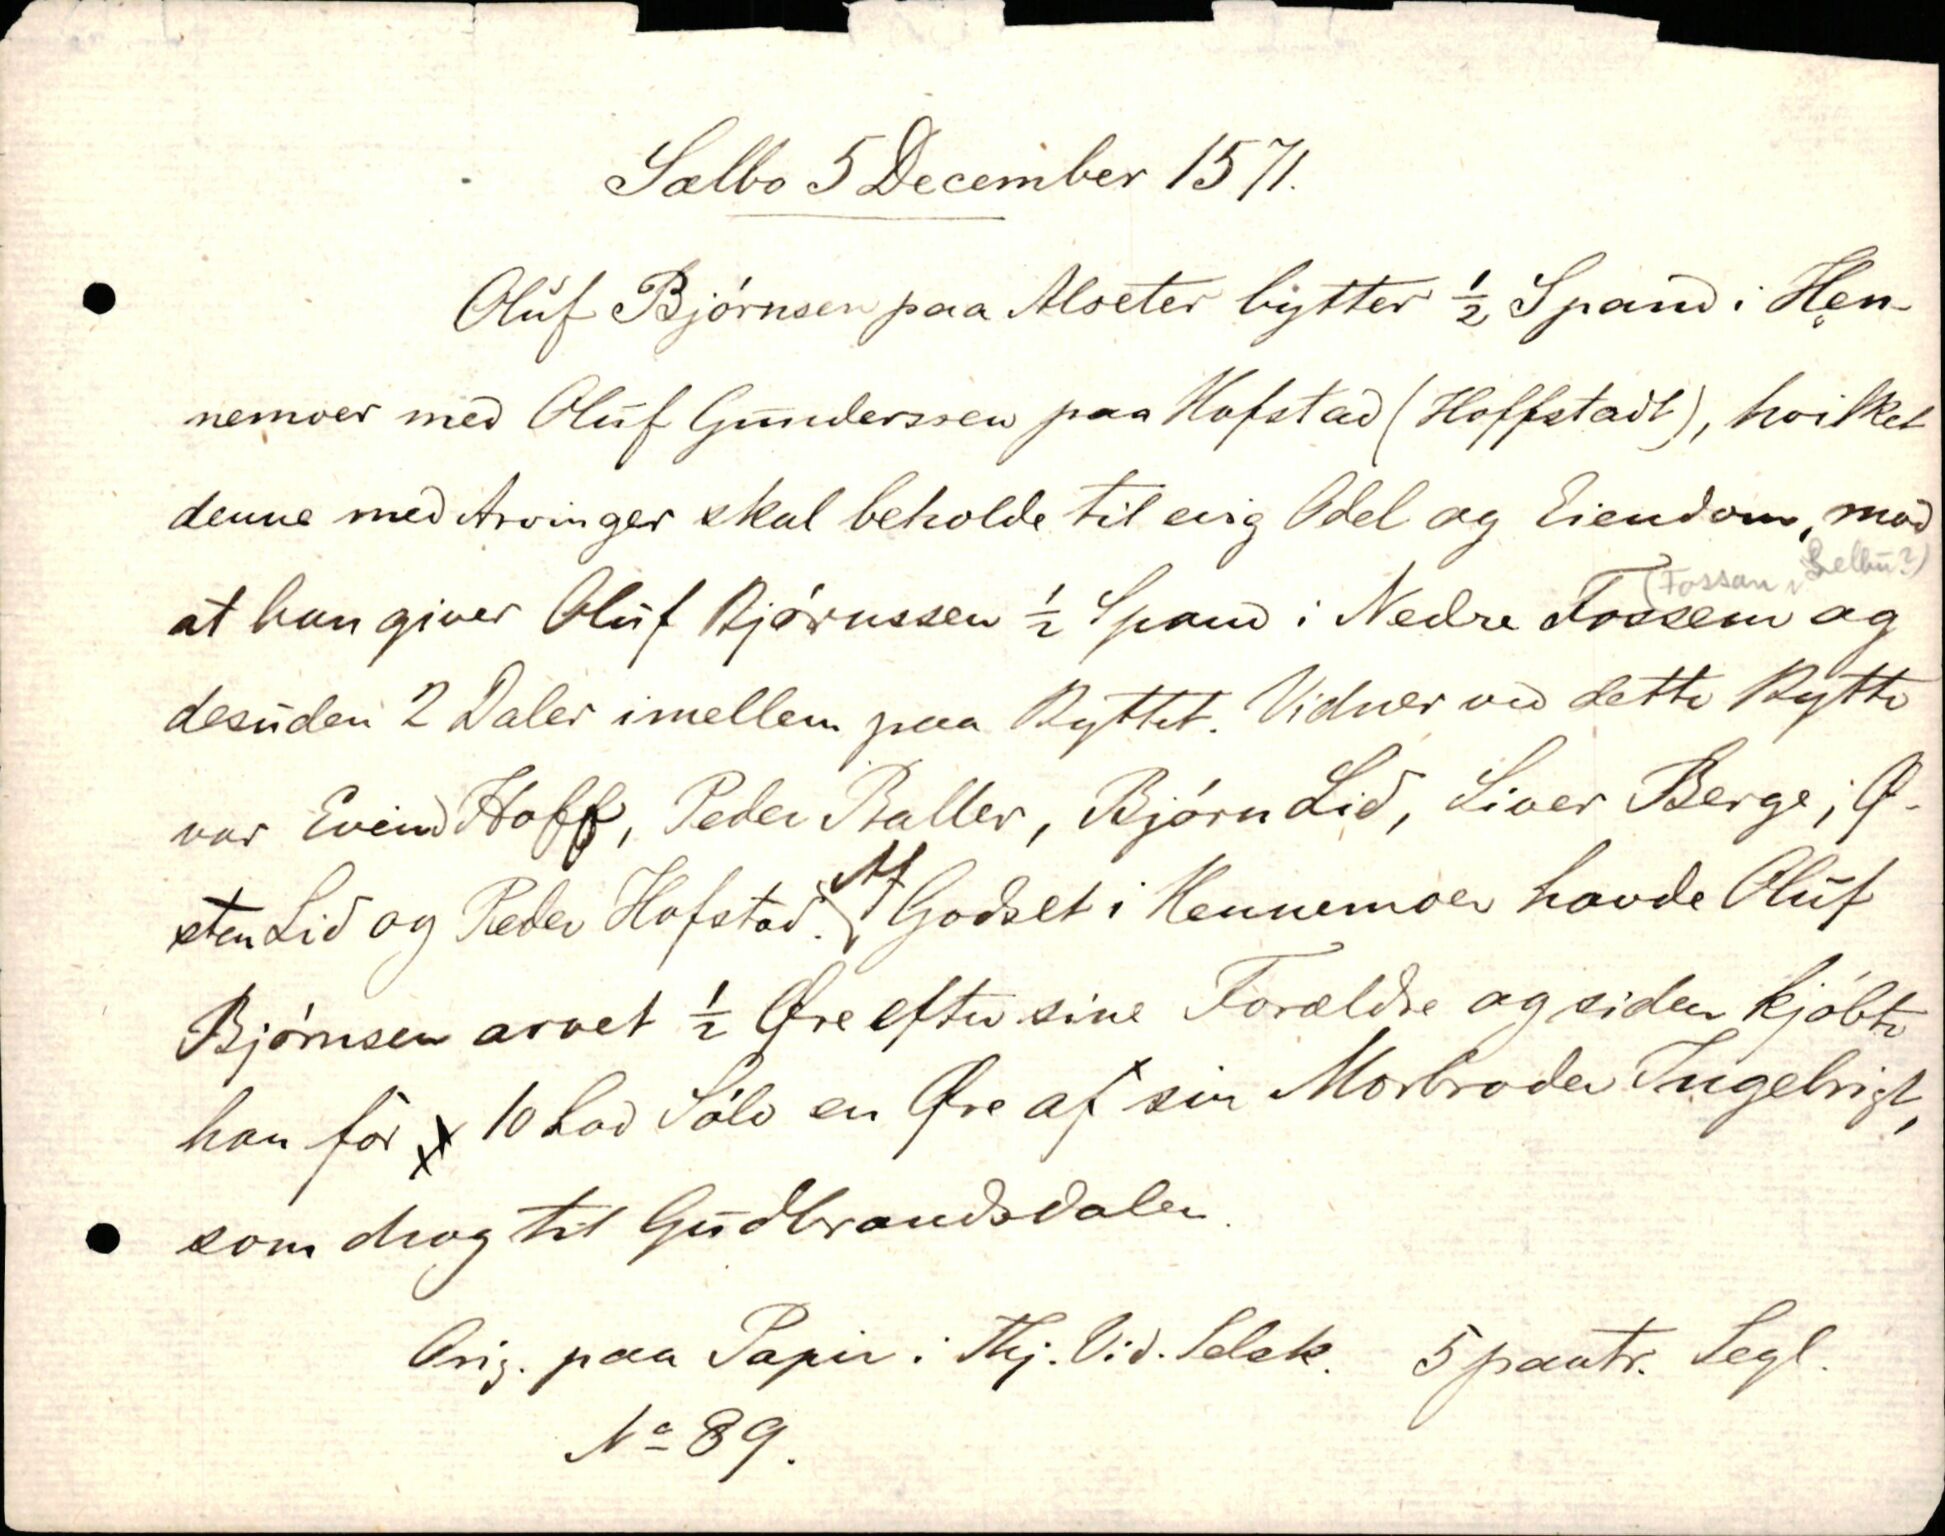 Sælbo 5 December 1571.
Oluf Bjórnsen paa Moeter bytter ½ Spand i Hen-
nemoer med Oluf Gunderssen paa Hofstad (Hoffstadt), hvilket
denne med Arvinger skal beholde til evig Odel og Eiendom, mod
(Fossan i Selbu?)
at han giver Oluf Bjórnssen ½ Spand i Nedre Fossem og
desuden 2 Daler imellem paa Byttet. Vidner ved dette Bytte
var Evind Hoff, Peder Baller, Bjórn Lid, Siver Berge, Ø-
sten Lid og Peder Hofstad. Af Godset i Hennemoer havde Oluf
Bjórnsen arvet ½ Øre efter sine Forældre og siden kjóbte
han for 10 Lod Sólv en Øre af sin Morbroder Ingebrigt,
som drog til Gudbrandsdalen.
Orig. paa Papir i Thj. Vid. Selsk. 5 paatr. Segl.
No 89.